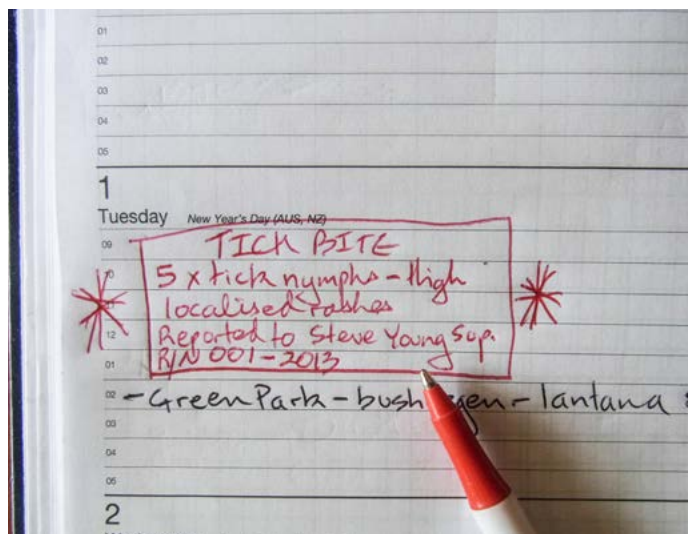 01
02
03
04
05
1
Tuesday New Year's Day (AUS, NZ)
09
TICK BITE
10
5 x tick nymphs - thigh
localised rashes
12
Reported to Steve Young Sup.
01
R/N 001-2013
02
- Green Park - bush regen - lantana
03
04
05
2